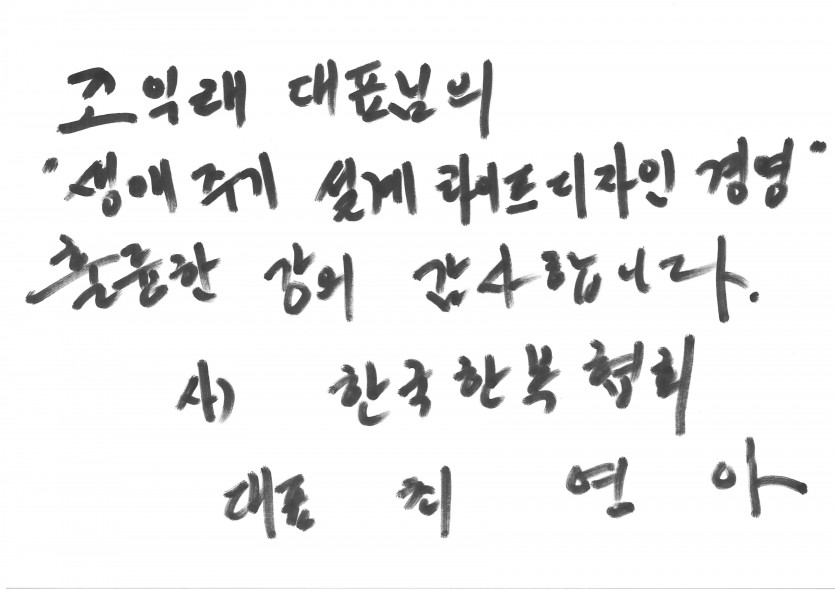 조익래 대표님의
"생애 주기 설계 라이프디자인 경영"
훌륭한 강의 감사합니다.
사) 한국한복협회
대표 최 연 아